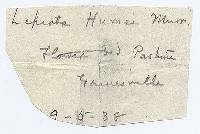 Lepiota Humei Murr.
Flower bed Pasture
Gainesville
9-5-38